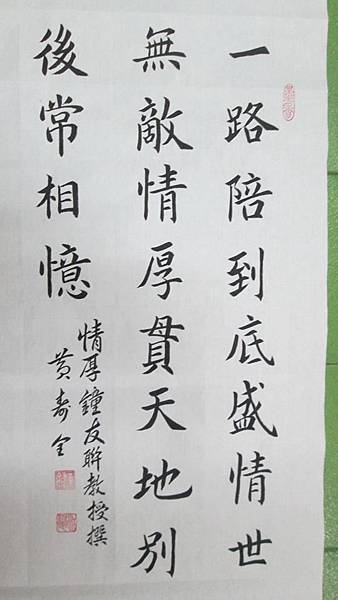 一路陪到底盛情世
無敵情厚貫天地別
後常相憶
情厚鐘友聯教授撰
黃壽全